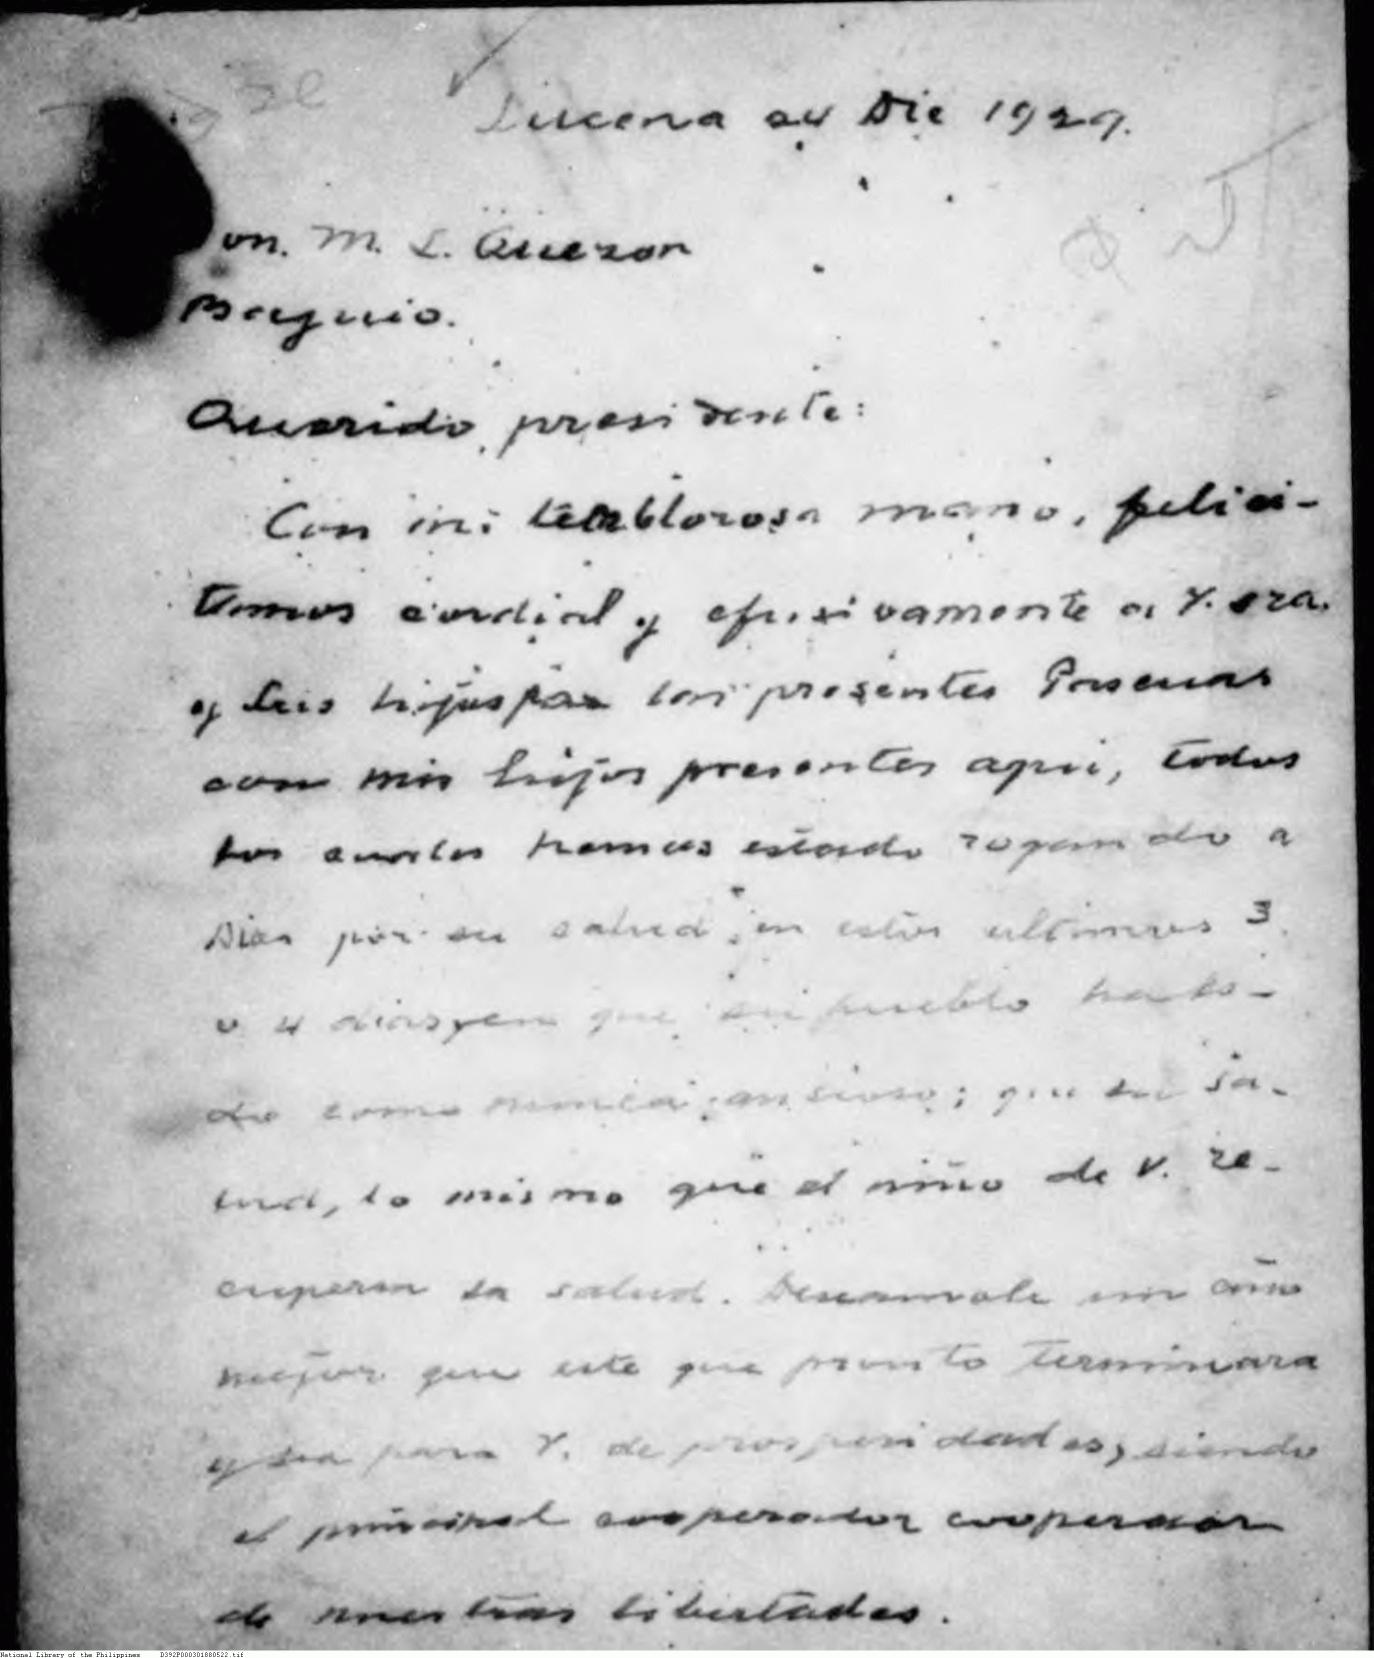 Lucena 24 Dic 1929.
on. M. L. Quezon
Baguio.
Querido presidente:
Con mi temblorosa mano, felici-
tamos cordial y efusivamente a V. sra.
y sus hijos por las presentes Pascuas
con mis hijos presentes aqui, todos
los cuales hemos estado rogando a
Dios por su salud, en estos ultimos 3
o 4 dias, en que su pueblo ha es-
do como nunca ansioso; que su sa-
lud, lo mismo que el niño de V. re-
cupera su salud. un año
mejor que este que pronto terminara
y sea para V. de prosperidades, siendo
el principal cooperador cooperador
de nuestras libertades.
National Library of the Philippines D392P000301880522.tif